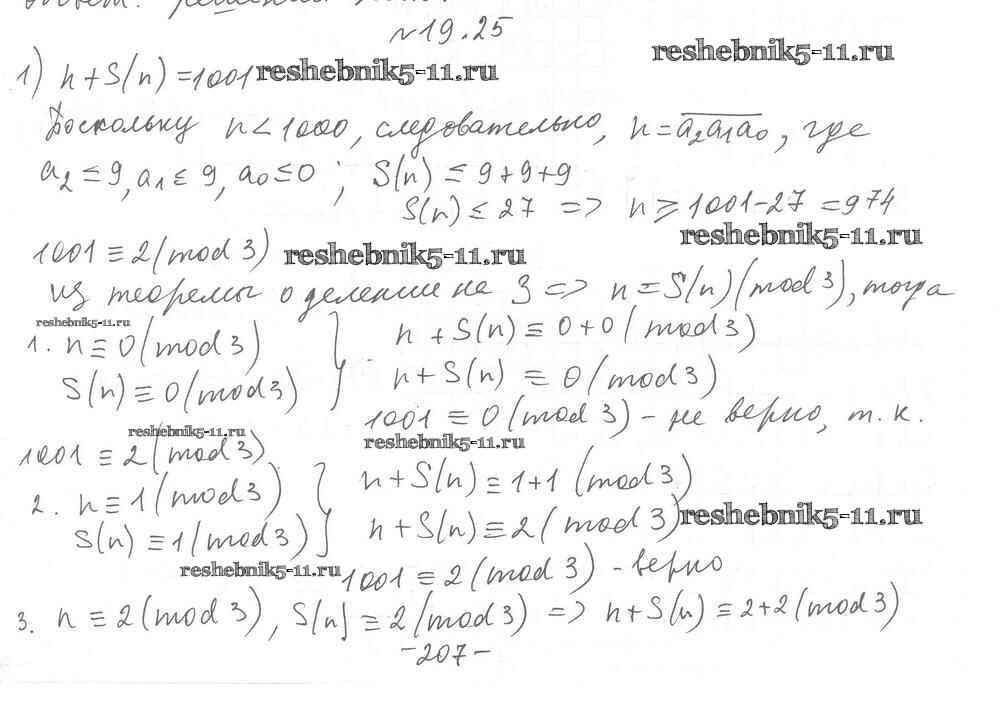 №19.25
reshebnik5-11.ru
1) n+S(n)=1001 reshebnik5-11.ru
Поскольку n<1000, следовательно, n=a₂a₁a₀, где
a₂≤9, a₁≤9, a₀≤0; S(n)≤9+9+9
S(n)≤27 => n≥1001-27=974
reshebnik5-11.ru
1001≡2(mod 3) reshebnik5-11.ru
из теоремы о делении на 3 => n=S(n)(mod 3), тогда
reshebnik5-11.ru
1. n≡0(mod 3) } n+S(n)≡0+0(mod 3)
S(n)≡0(mod 3) n+S(n)≡0(mod 3)
1001≡0(mod 3) - не верно, т.к.
reshebnik5-11.ru
reshebnik5-11.ru
1001≡2(mod 3)
2. n≡1(mod 3) } n+S(n)≡1+1(mod 3)
S(n)≡1(mod 3) n+S(n)≡2(mod 3) reshebnik5-11.ru
reshebnik5-11.ru 1001≡2(mod 3) - верно
3. n≡2(mod 3), S(n)≡2(mod 3) => n+S(n)≡2+2(mod 3)
-207-